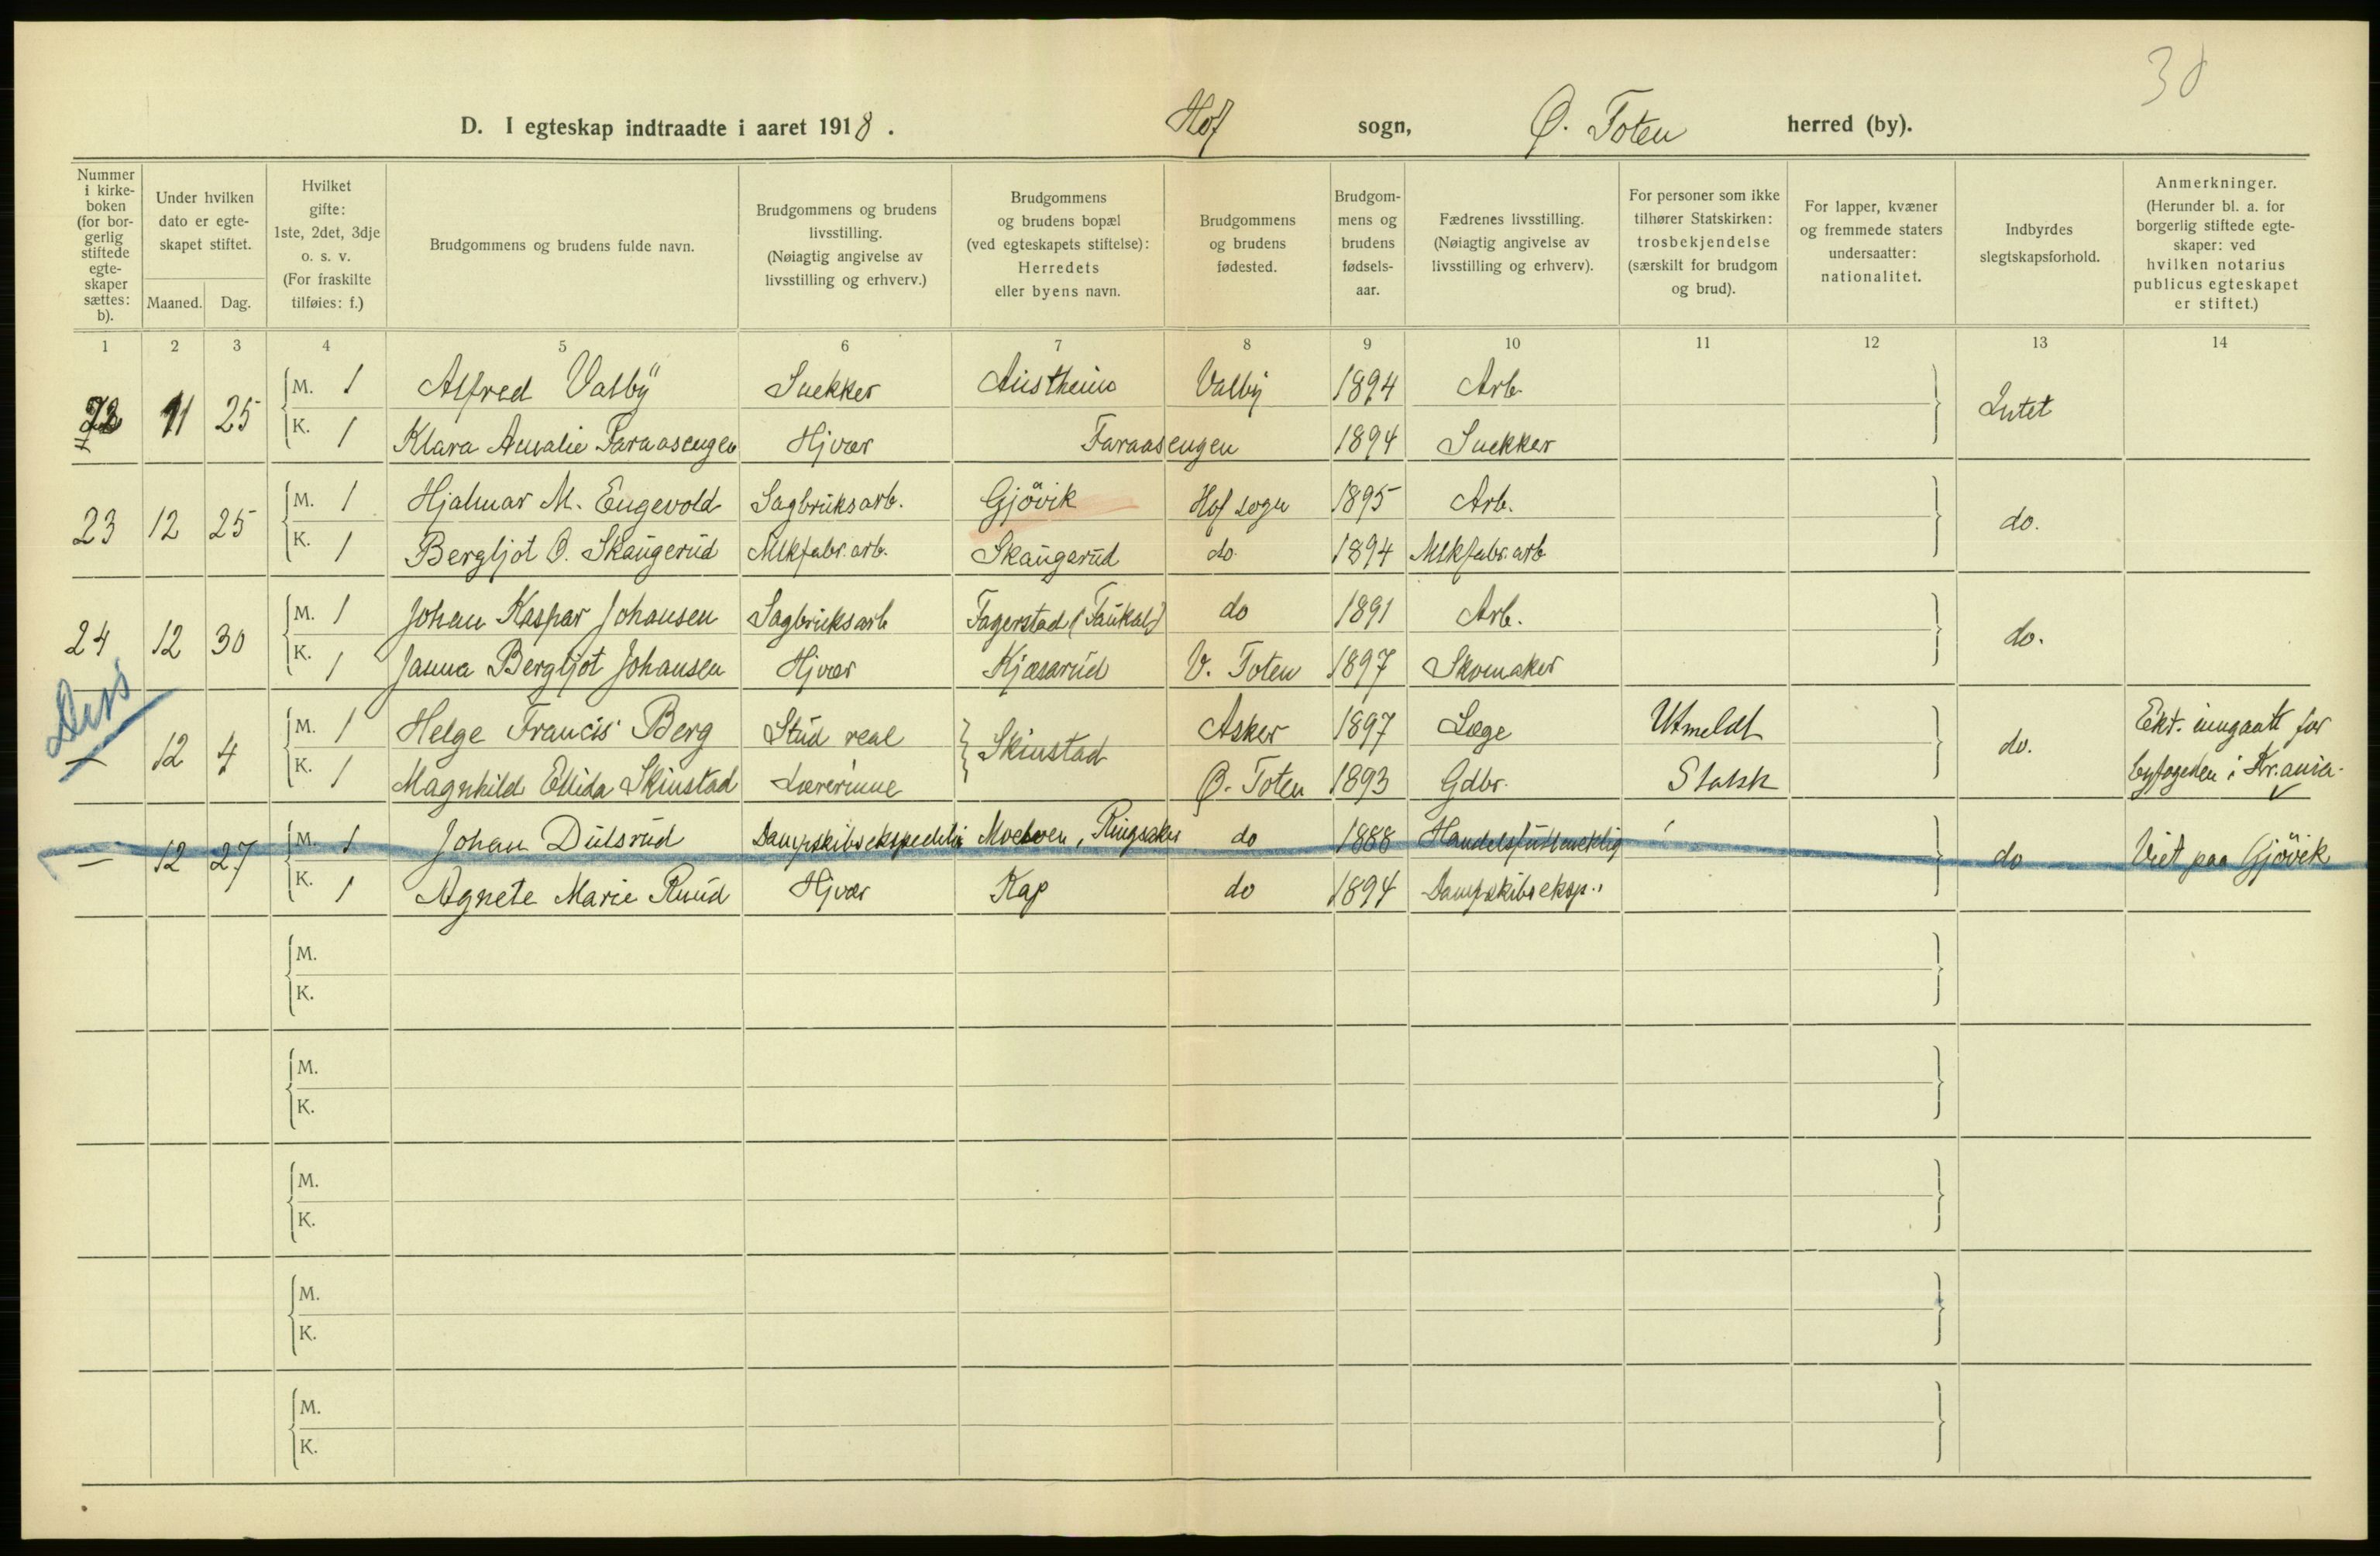 30
D. I egteskap indtraadte i aaret 1918. Hof sogn, Ø. Toten herred (by).
Nummer i kirke- boken (for bor- gerlig stiftede egte- skaper sættes: b).
Under hvilken dato er egte- skapet stiftet.
Maaned. Dag.
Hvilket gifte: 1ste, 2det, 3dje o. s. v. (For fraskilte tilføies: f.)
Brudgommens og brudens fulde navn.
Brudgommens og brudens livsstilling. (Nøiagtig angivelse av livsstilling og erhverv.)
Brudgommens og brudens bopæl (ved egteskapets stiftelse): Herredets eller byens navn.
Brudgommens og brudens fødested.
Brudgom- mens og brudens fødsels- aar.
Fædrenes livsstilling. (Nøiagtig angivelse av livsstilling og erhverv).
For personer som ikke tilhører Statskirken: trosbekjendelse (særskilt for brudgom og brud).
For lapper, kvæner og fremmede staters undersaatter: nationalitet.
Indbyrdes slegtskapsforhold.
Anmerkninger. (Herunder bl. a. for borgerlig stiftede egte- skaper: ved hvilken notarius publicus egteskapet er stiftet.)
1 2 3 4 5 6 7 8 9 10 11 12 13 14
22 11 25 M. 1 Alfred Valbÿ Snekker Austheim Valby 1894 Arb. Intet
K. 1 Klara Amalie Faraasengen Hjvær Faraasengen 1894 Snekker
23 12 25 M. 1 Hjalmar M. Engevold Sagbruksarb. Gjövik Hof sogn 1895 Arb. do.
K. 1 Bergljot O. Skaugerud Mlkfabr.arb. Skaugerud do. 1894 Mlkfabr.arb
24 12 30 M. 1 Johan Kaspar Johansen Sagbruksarb Fagerstad (Faukal) do 1891 Arb. do.
K. 1 Janna Bergljot Johansen Hjvær Kjæsarud V. Toten 1897 Skomaker
Diss
— 12 4 M. 1 Helge Francis Berg Stud real Skinstad Asker 1897 Læge Utmeldt do. Ekt. inngaatt for
K. 1 Magnhild Ellida Skinstad Lærerinne Ø. Toten 1893 Gdbr. Statsk byfogeden i Kr.ania.
— 12 27 M. 1 Johan Dulsrud Dampskibsekspeditør Moelven, Ringsaker do 1888 Handelsfuldmektig do Viet paa Gjövik
K. 1 Agnete Marie Ruud Hjvær Kap do 1894 Dampskibseksp.
M.
K.
M.
K.
M.
K.
M.
K.
M.
K.